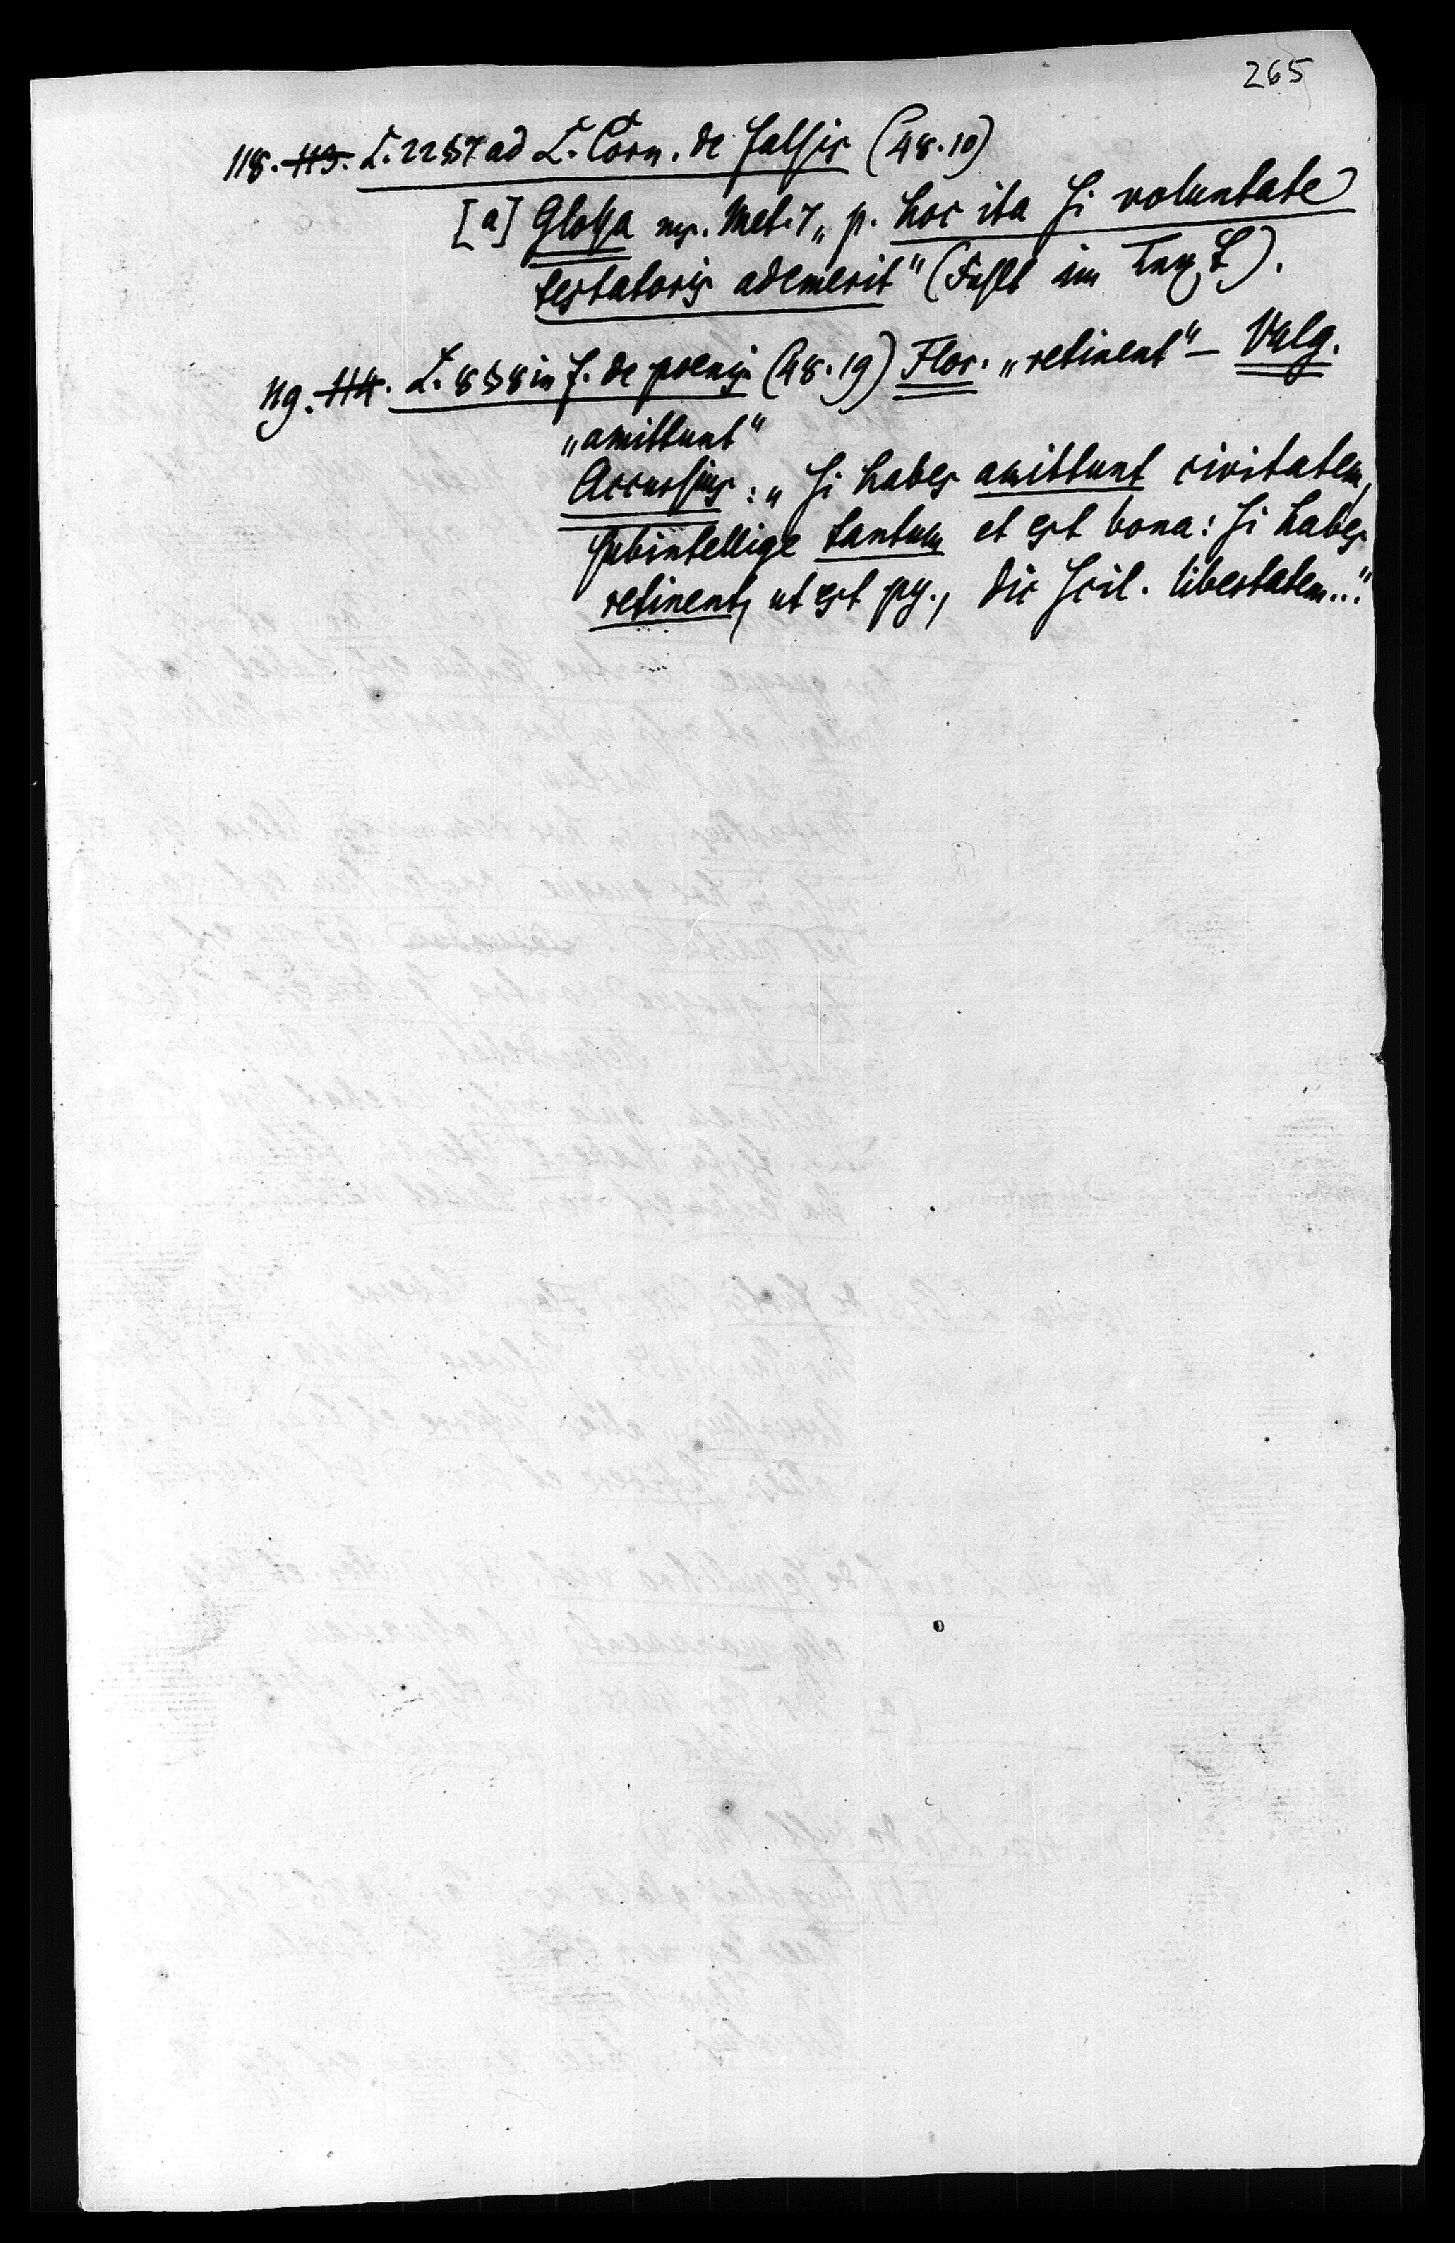 265
118. 113. L. 22 § 7 ad L. Corn. de falsis (48.10)
[a] Glossa ms. Met. 7 „p. hoc ita si voluntate
testatoris ademerit" (Fehlt im Text).
119. 114. L. 8 § 8 in f. de poenis (48.19) Flor. „retinent" – Vulg.
„amittunt"
Accursius: „si habes amittunt civitatem,
subintellige tantum et est bona: si habes
retinent, ut est py., dic scil. libertatem..."